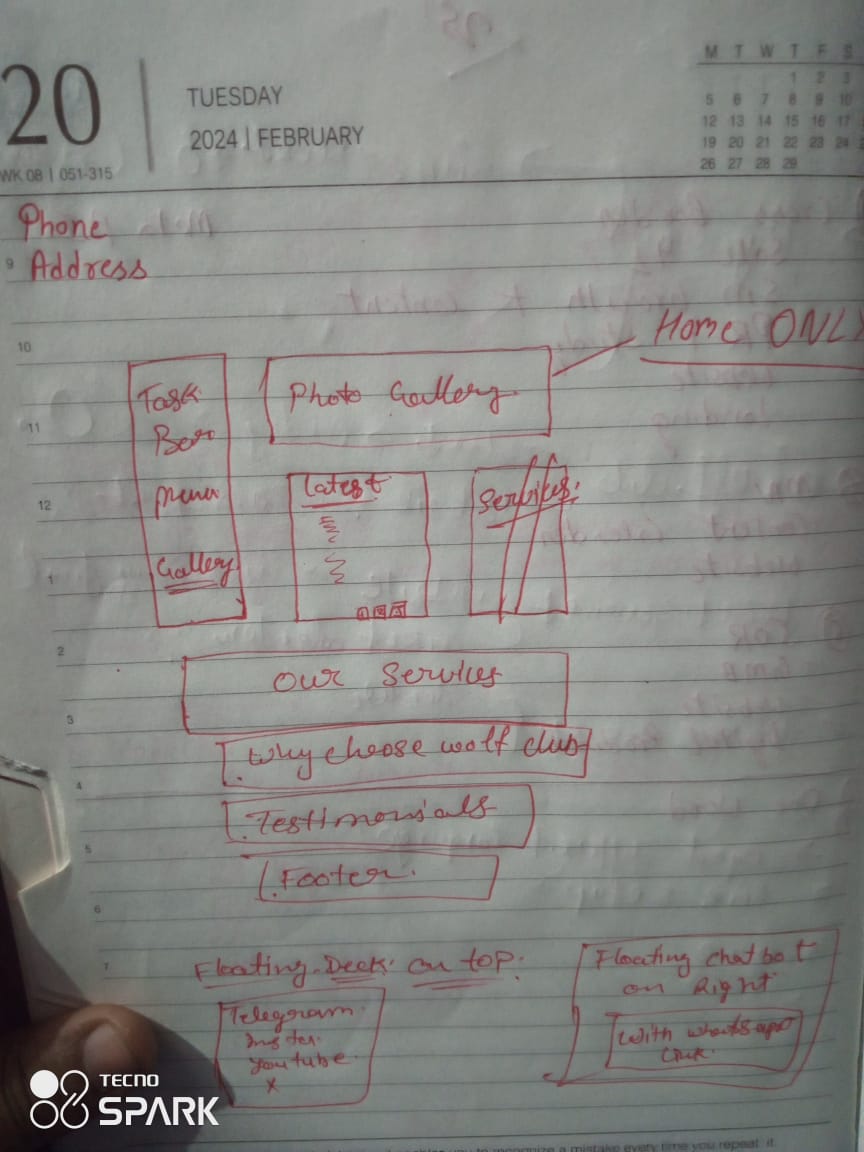 20
TUESDAY
2024 | FEBRUARY
WK 08 | 051-315
M T W T F S
1 2 3
5 6 7 8 9 10
12 13 14 15 16 17
19 20 21 22 23 24
26 27 28 29
Phone
9 Address
10
Home ONLY
Task
Photo Gallery
11
Bar
12
menu
Latest
Services:
1
Gallery
1 2 3
2
Our Services
3
Why choose wolf club
4
Testimonials
5
Footer.
6
7
Floating Deck on top.
Telegram
Insta
Youtube
X
Floating chatbot
on Right
With whatsapp
Link.
TECNO
SPARK
to recognize a mistake every time you repeat it.